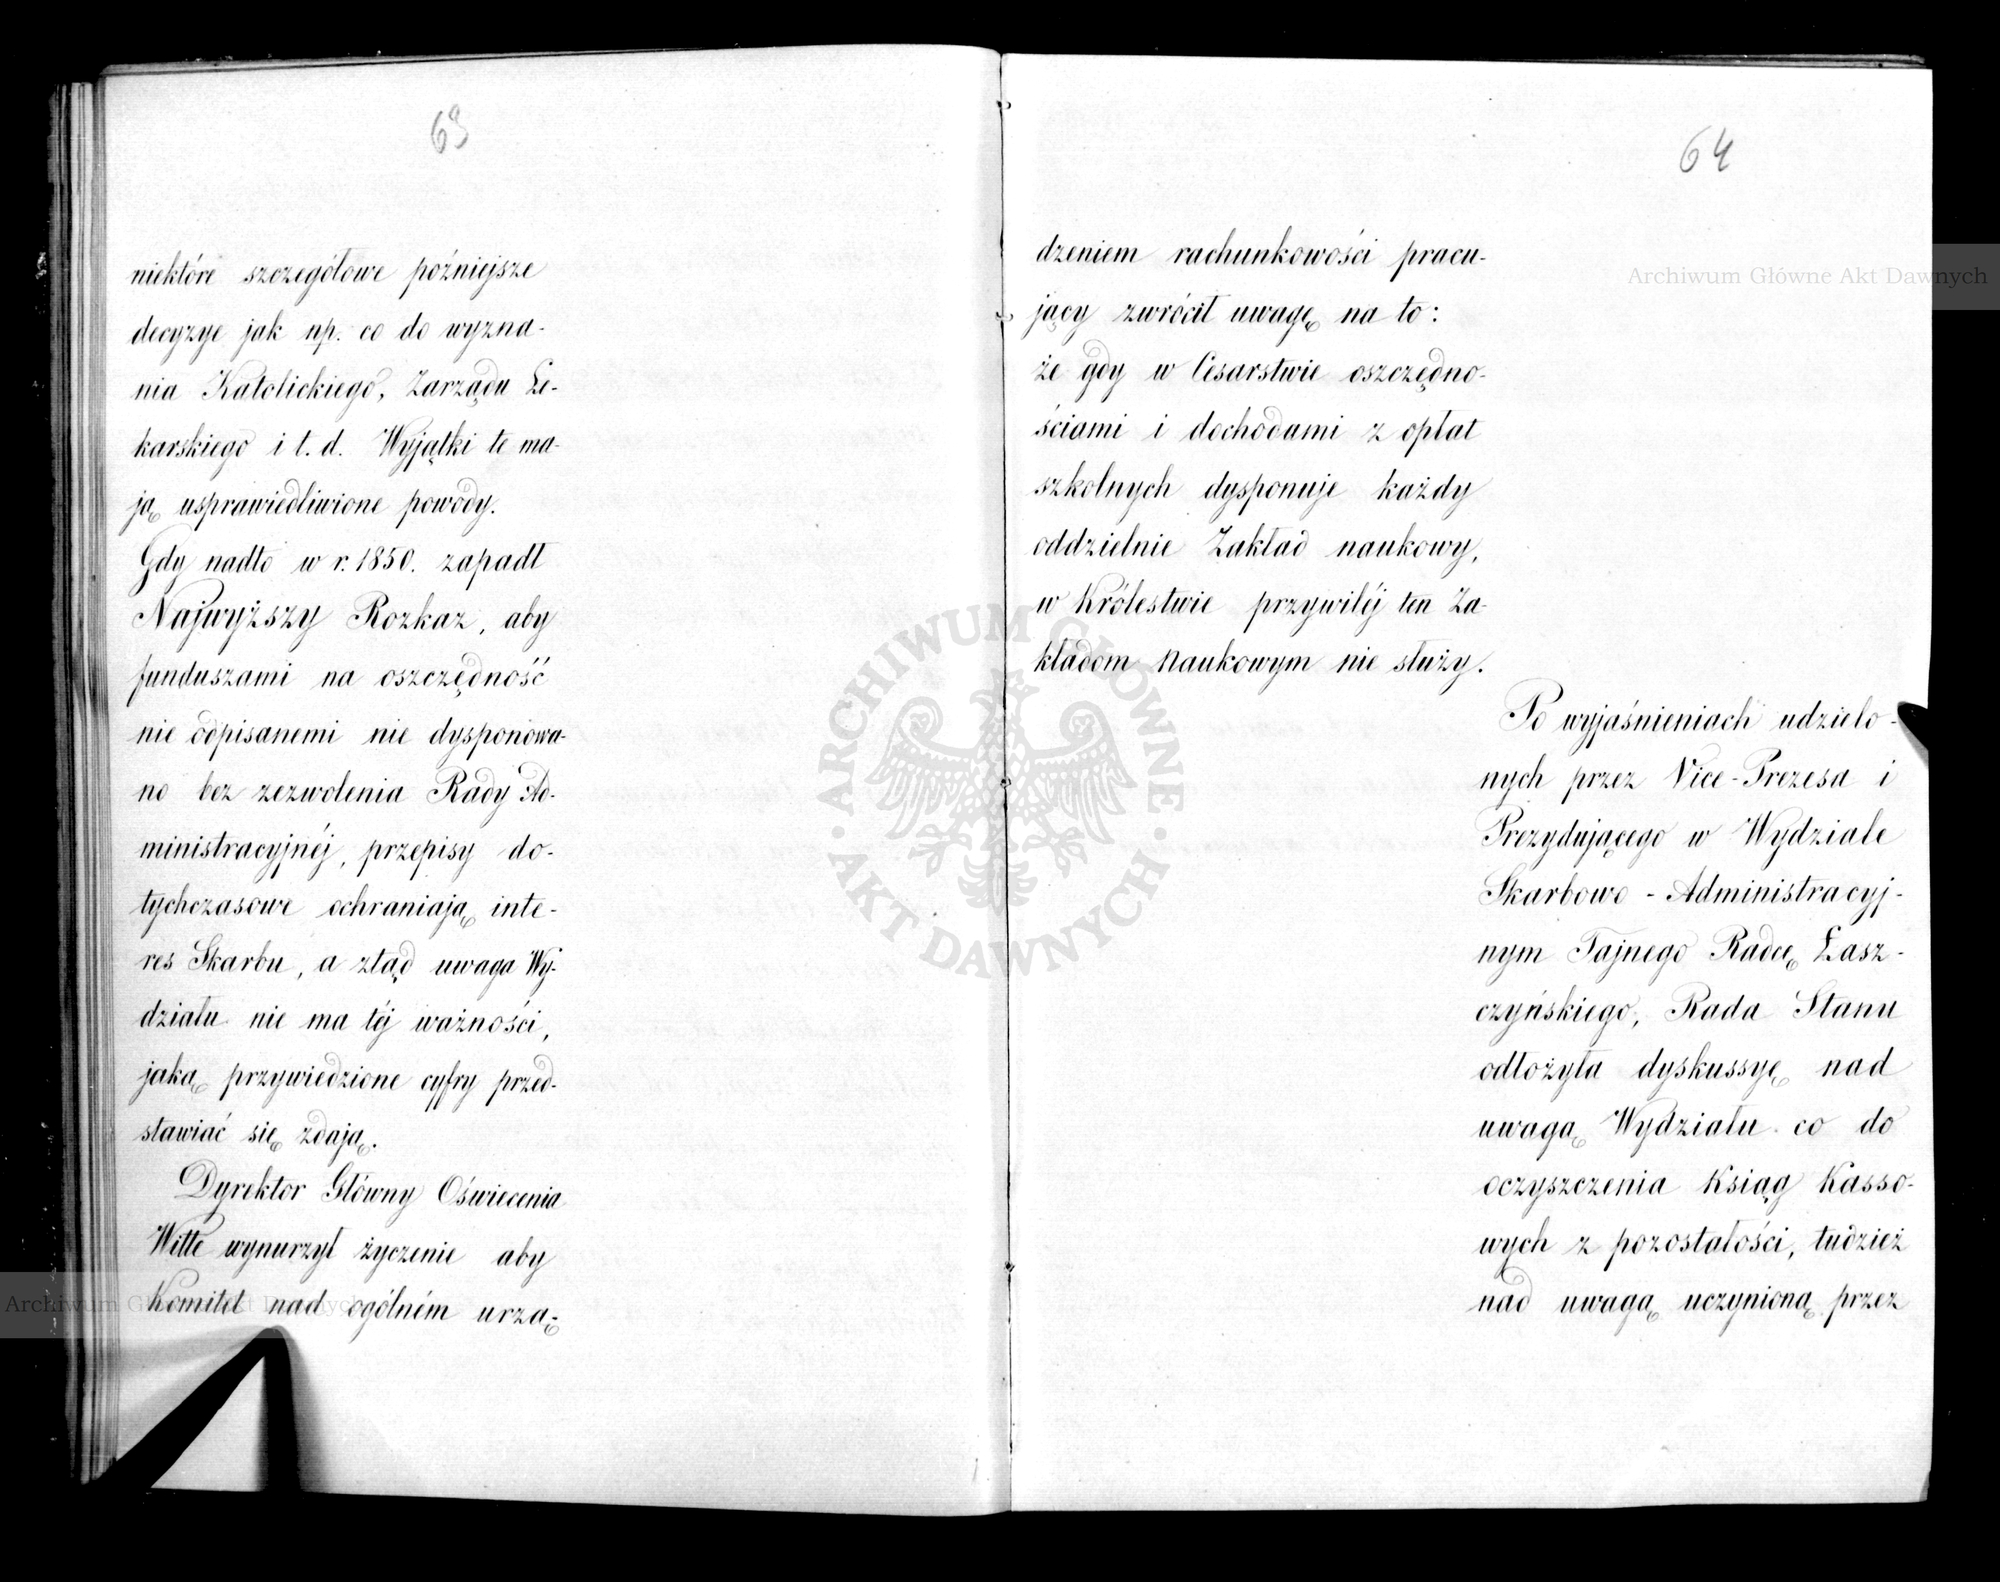 63
niektóre szczegółowe poźniejsze
decyzye jak np. co do wyzna-
nia Katolickiego, Zarządu Le-
karskiego i t. d. Wyjątki te ma-
ją usprawiedliwione powody.
Gdy nadto w r. 1850. zapadł
Najwyższy Rozkaz, aby
funduszami na oszczędność
nie odpisanemi nie dysponowa-
no bez zezwolenia Rady Ad-
ministracyjnéj, przepisy do-
tychczasowe ochraniają inte-
res Skarbu, a ztąd uwaga Wy-
działu nie ma téj ważności,
jaką przywiedzione cyfry przed-
stawiać się zdają.
Dyrektor Główny Oświecenia
Witte wynurzył życzenie aby
Komitet nad ogólném urzą-
64
dzeniem rachunkowości pracu-
jący zwrócił uwagę na to:
że gdy w Cesarstwie oszczędno-
ściami i dochodami z opłat
szkolnych dysponuje każdy
oddzielnie Zakład naukowy,
w Królestwie przywiléj ten Za-
kładom naukowym nie służy.
Po wyjaśnieniach udzielo-
nych przez Vice-Prezesa i
Prezydującego w Wydziale
Skarbowo-Administracyj-
nym Tajnego Radcę Łasz-
czyńskiego, Rada Stanu
odłożyła dyskussyę nad
uwagą Wydziału co do
oczyszczenia Ksiąg Kasso-
wych z pozostałości, tudzież
nad uwagą uczynioną przez
Archiwum Główne Akt Dawnych
Archiwum Główne Akt Dawnych
ARCHIWUM GŁÓWNE AKT DAWNYCH